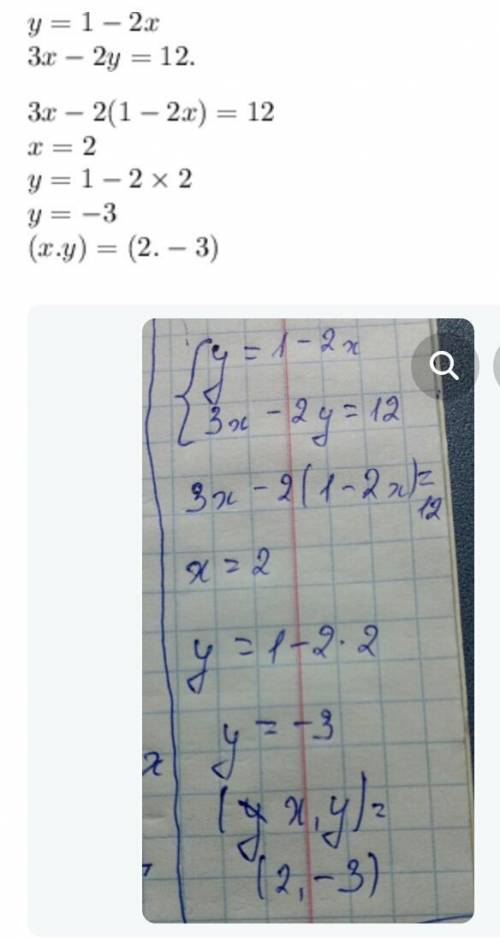 y = 1 − 2x
3x − 2y = 12.
3x − 2(1 − 2x) = 12
x = 2
y = 1 − 2 × 2
y = −3
(x.y) = (2. − 3)
y = 1 - 2x
3x - 2y = 12
3x - 2(1 - 2x) =
12
x = 2
y = 1 - 2 · 2
y = -3
x
(x, y) =
(2, -3)